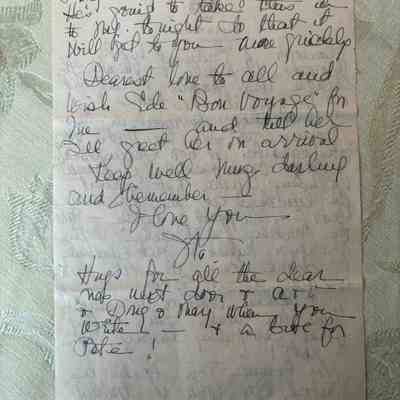 He's going to take this
to N.Y. tonight so that it
will get to you more quickly
Dearest love to all and
wish "Bon Voyage" for
me — and tell her
I'll greet her on arrival
Keep well darling
and remember —
I love You
Hugs for all the dear
next door &
& & May when you
write! — & a for
!